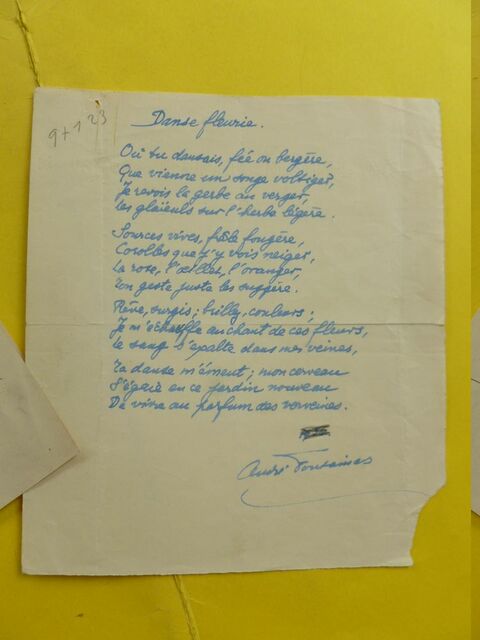 9+123
Danse fleurie.
Où tu dansais, fée ou bergère,
Que vienne un songe voltiger,
Je revois la gerbe au verger,
Les glaïeuls sur l'herbe légère.
Sources vives, frêle fougère,
Corolles que j'y vois neiger,
La rose, l'œillet, l'oranger,
Ton geste juste les suggère.
Rêve, surgis; brillez, couleurs;
Je m'échauffe au chant de ces fleurs,
Le sang s'exalte dans mes veines,
Ta danse m'émeut; mon cerveau
S'égare en ce jardin nouveau
De vivre au parfum des verveines.
André Fontainas